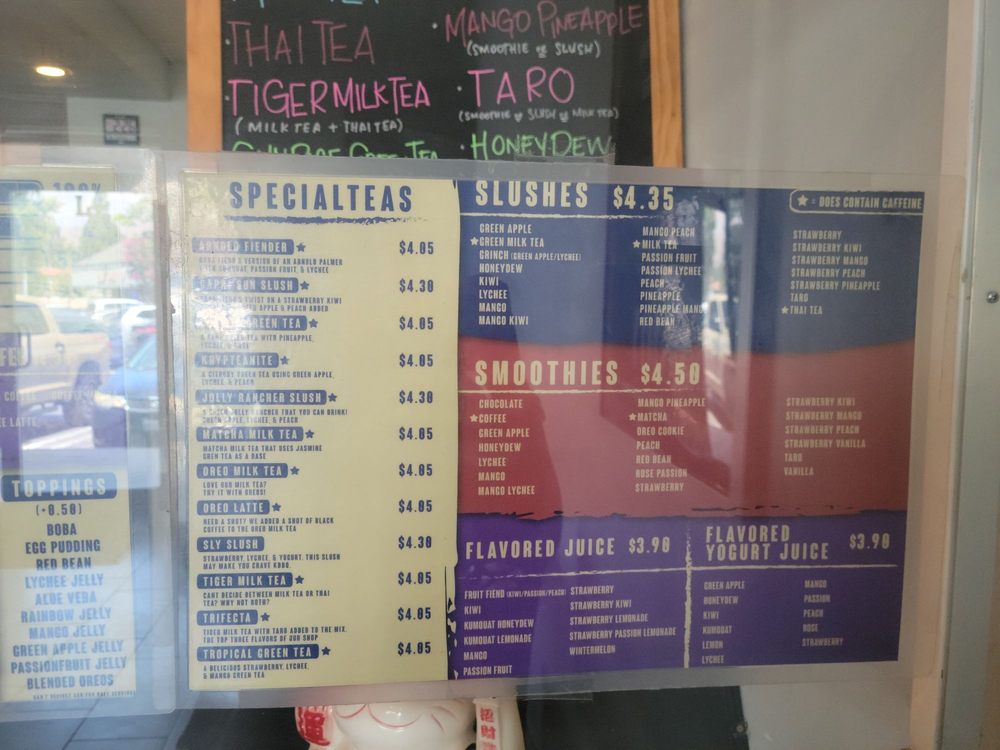 THAI TEA
TIGER MILK TEA
(MILK TEA + THAI TEA)
• MANGO PINEAPPLE
(SMOOTHIE or SLUSH)
• TARO
(SMOOTHIE or SLUSH or MILK TEA)
• HONEYDEW
100%
TOPPINGS
(+0.50)
BOBA
EGG PUDDING
RED BEAN
LYCHEE JELLY
ALOE VERA
RAINBOW JELLY
MANGO JELLY
GREEN APPLE JELLY
PASSIONFRUIT JELLY
BLENDED OREOS
SPECIALTEAS
ARNOLD FIENDER ★ $4.05
BOBA FIEND'S VERSION OF AN ARNOLD PALMER
WITH KUMQUAT, PASSION FRUIT, & LYCHEE
CAPRI SUN SLUSH ★ $4.30
TWIST ON A STRAWBERRY KIWI
APPLE & PEACH ADDED
GREEN TEA ★ $4.05
TEA WITH PINEAPPLE,
KRYPTEANITE ★ $4.05
A CITRUSY GREEN TEA USING GREEN APPLE,
LYCHEE, & PEACH
JOLLY RANCHER SLUSH ★ $4.30
JOLLY RANCHER THAT YOU CAN DRINK!
GREEN APPLE, LYCHEE, & PEACH
MATCHA MILK TEA ★ $4.05
MATCHA MILK TEA THAT USES JASMINE
GREN TEA AS A BASE
OREO MILK TEA ★ $4.05
LOVE OUR MILK TEA?
TRY IT WITH OREOS!
OREO LATTE ★ $4.05
NEED A SHOT? WE ADDED A SHOT OF BLACK
COFFEE TO THE OREO MILK TEA
SLY SLUSH $4.30
STRAWBERRY, LYCHEE, & YOGURT. THIS SLUSH
MAY MAKE YOU CRAVE KOBO.
TIGER MILK TEA ★ $4.05
CANT DECIDE BETWEEN MILK TEA OR THAI
TEA? WHY NOT BOTH?
TRIFECTA ★ $4.05
TIGER MILK TEA WITH TARO ADDED TO THE MIX.
THE TOP THREE FLAVORS OF OUR SHOP
TROPICAL GREEN TEA ★ $4.05
A DELICIOUS STRAWBERRY, LYCHEE,
& MANGO GREEN TEA
SLUSHES $4.35
★ = DOES CONTAIN CAFFEINE
GREEN APPLE
★GREEN MILK TEA
GRINCH (GREEN APPLE/LYCHEE)
HONEYDEW
KIWI
LYCHEE
MANGO
MANGO KIWI
MANGO PEACH
★MILK TEA
PASSION FRUIT
PASSION LYCHEE
PEACH
PINEAPPLE
PINEAPPLE MANGO
RED BEAN
STRAWBERRY
STRAWBERRY KIWI
STRAWBERRY MANGO
STRAWBERRY PEACH
STRAWBERRY PINEAPPLE
TARO
★THAI TEA
SMOOTHIES $4.50
CHOCOLATE
★COFFEE
GREEN APPLE
HONEYDEW
LYCHEE
MANGO
MANGO LYCHEE
MANGO PINEAPPLE
★MATCHA
OREO COOKIE
PEACH
RED BEAN
ROSE PASSION
STRAWBERRY
STRAWBERRY KIWI
STRAWBERRY MANGO
STRAWBERRY PEACH
STRAWBERRY VANILLA
TARO
VANILLA
FLAVORED JUICE $3.90
FRUIT FIEND (KIWI/PASSION/PEACH)
KIWI
KUMQUAT HONEYDEW
KUMQUAT LEMONADE
MANGO
PASSION FRUIT
STRAWBERRY
STRAWBERRY KIWI
STRAWBERRY LEMONADE
STRAWBERRY PASSION LEMONADE
WINTERMELON
FLAVORED
YOGURT JUICE $3.90
GREEN APPLE
HONEYDEW
KIWI
KUMQUAT
LEMON
LYCHEE
MANGO
PASSION
PEACH
ROSE
STRAWBERRY
招財